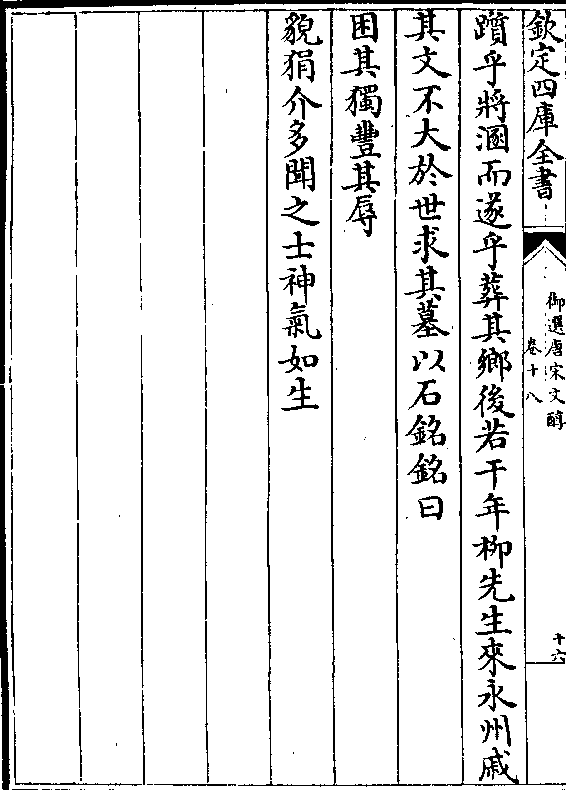 欽定四庫全書
御選唐宋文醇
卷十八
十六
躓乎將溷而遂乎葬其鄉後若干年柳先生來永州戚
其文不大於世求其墓以石銘銘曰
困其獨豐其辱
貌狷介多聞之士神氣如生